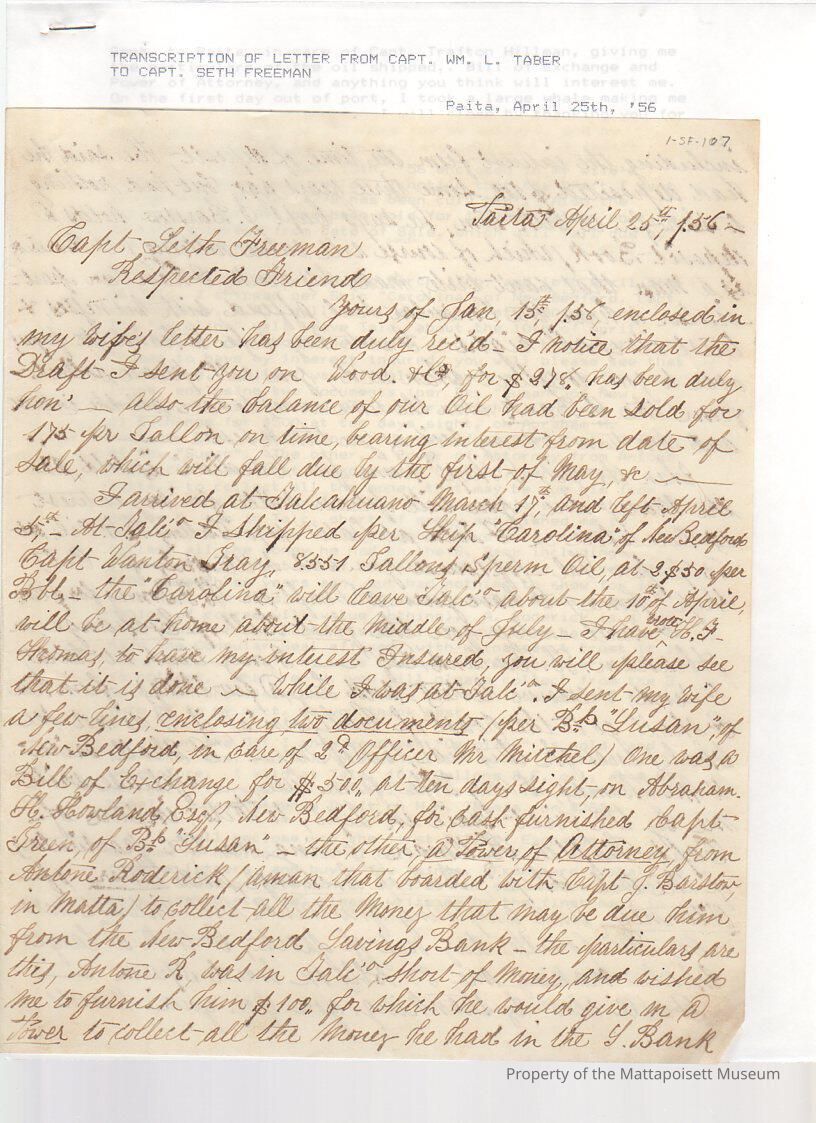 TRANSCRIPTION OF LETTER FROM CAPT. WM. L. TABER
TO CAPT. SETH FREEMAN
Paita, April 25th, '56
1-SF-107
Paita April 25th, /56 –
Capt Seth Freeman
Respected Friend
Yours of Jan 15th /56 enclosed in
my wife's letter has been duly rec'd – I notice that the
Draft I sent you on Wood. & Co, for $278,, has been duly
hon' — also the balance of our Oil had been sold for
175 pr Gallon on time, bearing interest from date of
sale, which will fall due by the first of May, &c —
I arrived at Talcahuano March 17th, and left April
5th – At Talc'o I shipped per Ship "Carolina" of New Bedford
Capt Wanton Gray, 8551 Gallons Sperm Oil, at 2$50 per
Bbl – the "Carolina" will leave Talc'o about the 10th of April,
will be at home about the middle of July – I have wrote H. F
Thomas, to have my interest Insured, you will please see
that it is done – While I was at Talc'o. I sent my wife
a few lines enclosing two documents (per Bk "Susan", of
New Bedford, in care of 2d Officer Mr Mitchel) One was a
Bill of Exchange for $500,, at ten days sight, on Abraham.
H. Howland, Esq', New Bedford, for cash furnished Capt
Green, of Bk "Susan" – the other, a Power of Attorney, from
Antone Roderick (a man that boarded with Capt J. Barstow,
in Matta) to collect all the Money that may be due him
from the New Bedford Savings Bank – the particulars are
this, Antone R was in Talc'o short of Money, and wished
me to furnish him $100,, for which he would give m a
Power to collect all the Money he had in the S. Bank
Property of the Mattapoisett Museum